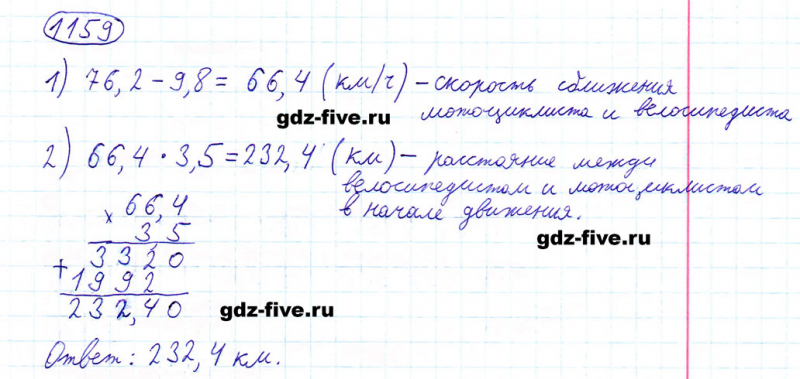 1159
1) 76,2 - 9,8 = 66,4 (км/ч) - скорость сближения
мотоциклиста и велосипедиста
gdz-five.ru
2) 66,4 · 3,5 = 232,4 (км) - расстояние между
велосипедистом и мотоциклистом
в начале движения.
× 66,4
3 5
gdz-five.ru
3 3 2 0
+ 1 9 9 2
2 3 2, 4 0
gdz-five.ru
Ответ: 232,4 км.